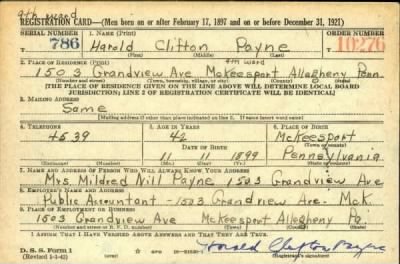 9th ward
REGISTRATION CARD—(Men born on or after February 17, 1897 and on or before December 31, 1921)
SERIAL NUMBER 1. NAME (Print) ORDER NUMBER
786 Harold Clifton Payne 10276
(First) (Middle) (Last)
2. PLACE OF RESIDENCE (Print) 4th ward
1503 Grandview Ave McKeesport Allegheny Penn.
(Number and street) (Town, township, village, or city) (County) (State)
[THE PLACE OF RESIDENCE GIVEN ON THE LINE ABOVE WILL DETERMINE LOCAL BOARD
JURISDICTION; LINE 2 OF REGISTRATION CERTIFICATE WILL BE IDENTICAL]
3. MAILING ADDRESS
Same
[Mailing address if other than place indicated on line 2. If same insert word same]
4. TELEPHONE 5. AGE IN YEARS 6. PLACE OF BIRTH
4539 42 McKeesport
DATE OF BIRTH (Town or county)
11 1899 Pennsylvania
(Exchange) (Number) (Mo.) (Day) (Yr.) (State or country)
7. NAME AND ADDRESS OF PERSON WHO WILL ALWAYS KNOW YOUR ADDRESS
Mrs Mildred Nill Payne 1503 Grandview Ave
8. EMPLOYER'S NAME AND ADDRESS
Public Accountant - 1503 Grandview Ave. McK.
9. PLACE OF EMPLOYMENT OR BUSINESS
1503 Grandview Ave McKeesport Allegheny Pa.
(Number and street or R. F. D. number) (Town) (County) (State)
I AFFIRM THAT I HAVE VERIFIED ABOVE ANSWERS AND THAT THEY ARE TRUE.
D. S. S. Form 1 Harold Clifton Payne
(Revised 1-1-42)